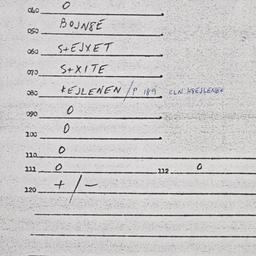 040. O
050. BOJNSÉ
060. S+EJXET
070. S+XITE
080. KEJLENEN / P 189
090. O
100. O
110. O
111. O 112. O
120. + / -